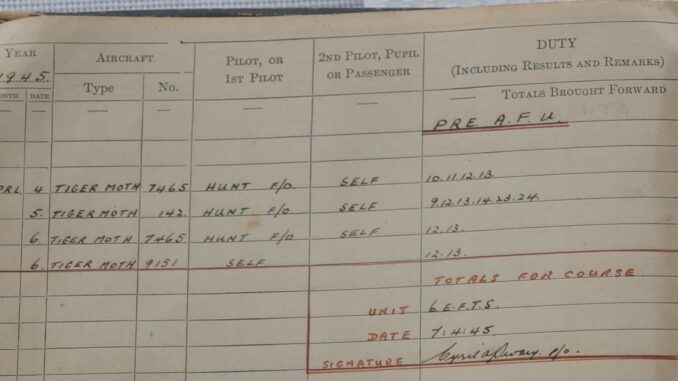 YEAR AIRCRAFT PILOT, OR 1ST PILOT 2ND PILOT, PUPIL OR PASSENGER DUTY (INCLUDING RESULTS AND REMARKS)
1945.
MONTH DATE Type No.
— — — — — TOTALS BROUGHT FORWARD
PRE. A.F.U.
PRL 4 TIGER MOTH 7465 HUNT F/O SELF 10.11.12.13.
5. TIGER MOTH 142. HUNT F/O SELF 9.12.13.14.23.24.
6. TIGER MOTH 7465 HUNT F/O SELF 12.13.
6. TIGER MOTH 9151 SELF 12.13.
TOTALS FOR COURSE
UNIT 6 E.F.T.S.
DATE 7:4:45.
SIGNATURE